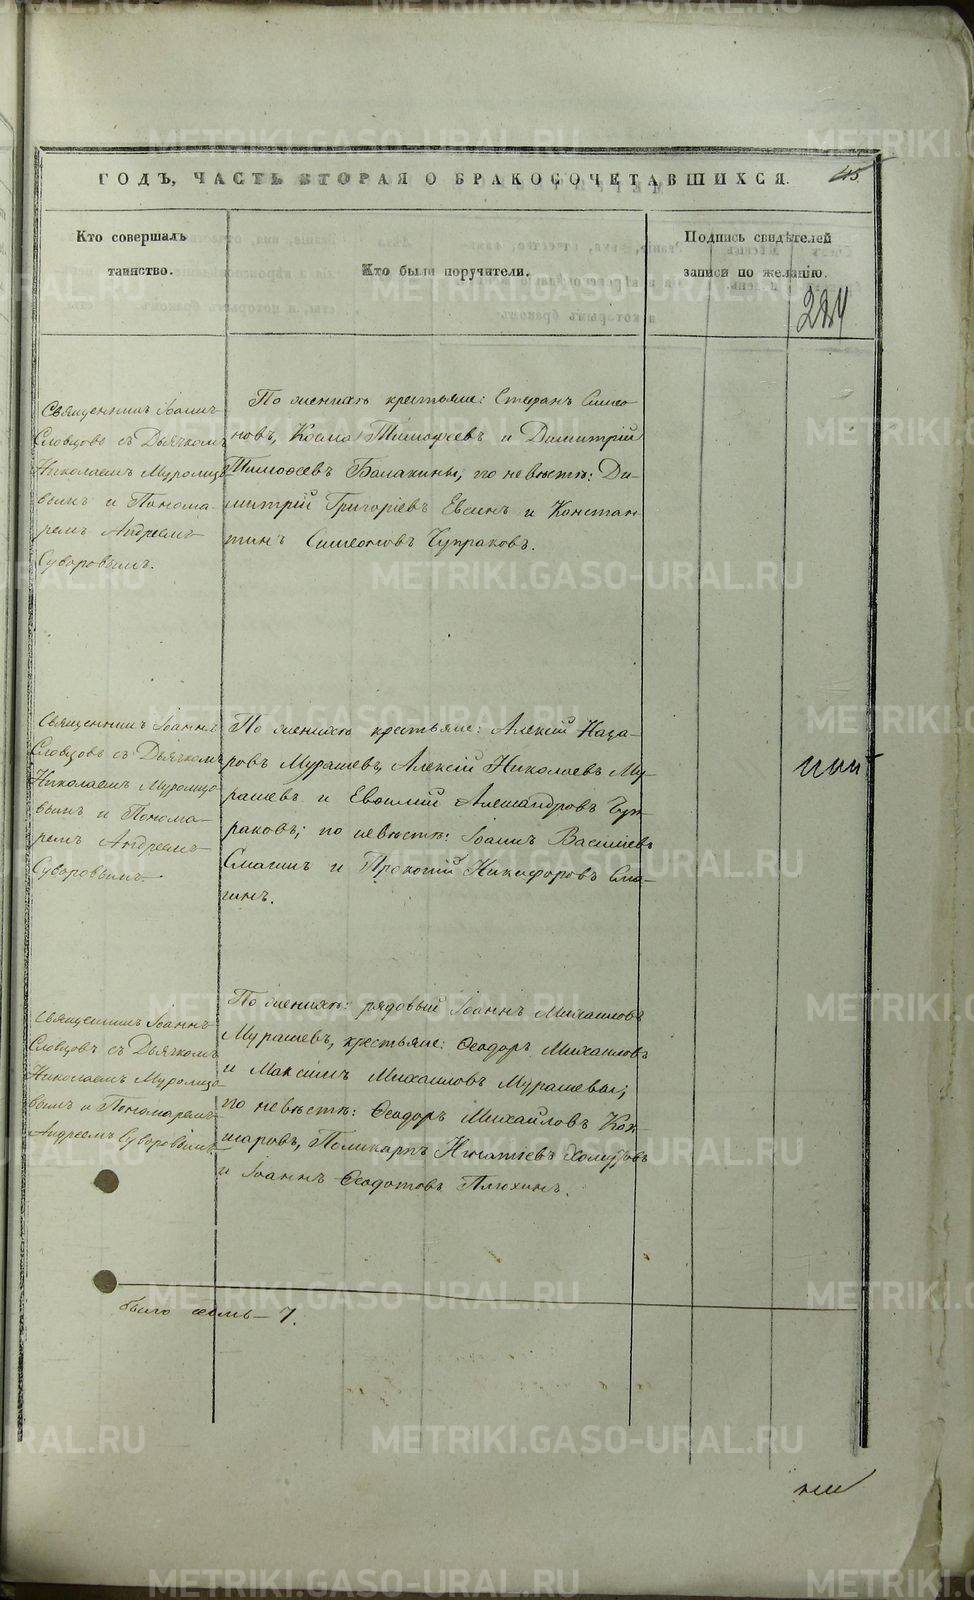 ГОДЪ, ЧАСТЬ ВТОРАЯ О БРАКОСОЧЕТАВШИХСЯ.
Кто совершалъ
таинство.
Кто были поручители.
Подпись свидѣтелей
записи по желанію.
224
Священникъ Іоаннъ
Словцовъ съ Дьячкомъ
Николаемъ Муромцо-
вымъ и Понома-
ремъ Андреемъ
Суворовымъ.
По женихѣ крестьяне: Стефанъ Симео-
новъ, Косма Тимоѳеевъ и Димитрій
Тимоѳеевъ Балакины; по невѣстѣ: Ди-
митрій Григоріевъ Евсинъ и Констан-
тинъ Симеоновъ Чупраковъ.
Священникъ Іоаннъ
Словцовъ съ Дьячкомъ
Николаемъ Муромцо-
вымъ и Понома-
ремъ Андреемъ
Суворовымъ.
По женихѣ крестьяне: Алексій Наза-
ровъ Мурашевъ, Алексій Николаевъ Му-
рашевъ и Евѳимій Александровъ Чуп-
раковъ; по невѣстѣ: Іоаннъ Василіевъ
Смагинъ и Прокопій Никифоровъ Сма-
гинъ.
Священникъ Іоаннъ
Словцовъ съ Дьячкомъ
Николаемъ Муромцо-
вымъ и Пономаремъ
Андреемъ Суворовымъ.
По женихѣ: рядовый Іоаннъ Михаиловъ
Мурашевъ, крестьяне: Ѳеодоръ Михаиловъ
и Максимъ Михаиловъ Мурашевы;
по невѣстѣ: Ѳеодоръ Михайловъ Кок-
шаровъ, Поликарпъ Игнатіевъ
и Іоаннъ Ѳеодотовъ Плюхинъ.
было семь – 7.
METRIKI.GASO-URAL.RU